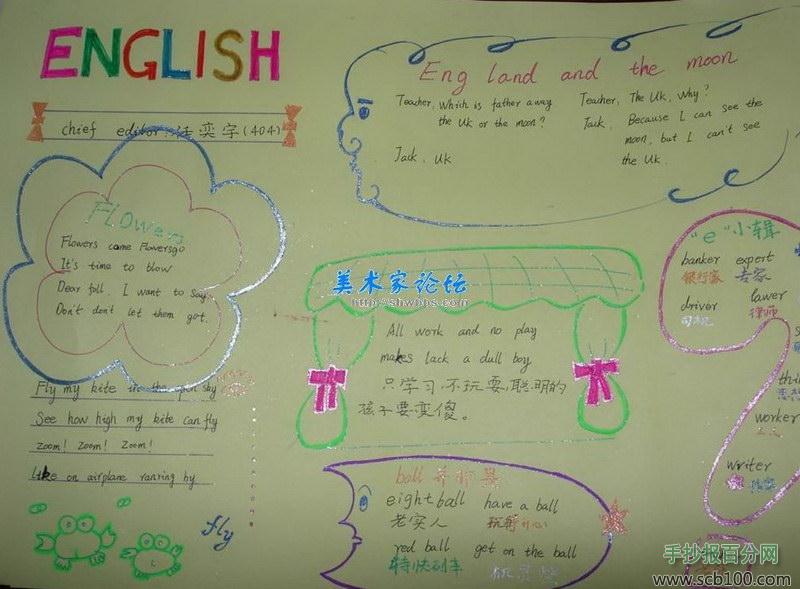 ENGLISH
chief editor:
(404)
Eng land and the moon
Teacher, Which is father away
the UK or the moon?
Jack, UK
Teacher, The UK, Why?
Jack, Because I can see the
moon, but I can't see
the UK.
FLOwers
Flowers come Flowersgo
It's time to blow
Dear fall I want to say
Don't don't let them got.
Fly my kite in the sky
See how high my kite can fly
Zoom! Zoom! Zoom!
Like on airplane ranring by
fly
美术家论坛
http://shwbbs.com
All work and no play
makes lack a dull boy
只学习,不玩耍,聪明的
孩子要变傻。
"e"小辑
banker expert
银行家 专家
driver lawer
司机 律师
thi
worker
工人
writer
作家
ball
eight ball have a ball
老实人 玩得开心
red ball get on the ball
特快列车
手抄报百分网
www.scb100.com